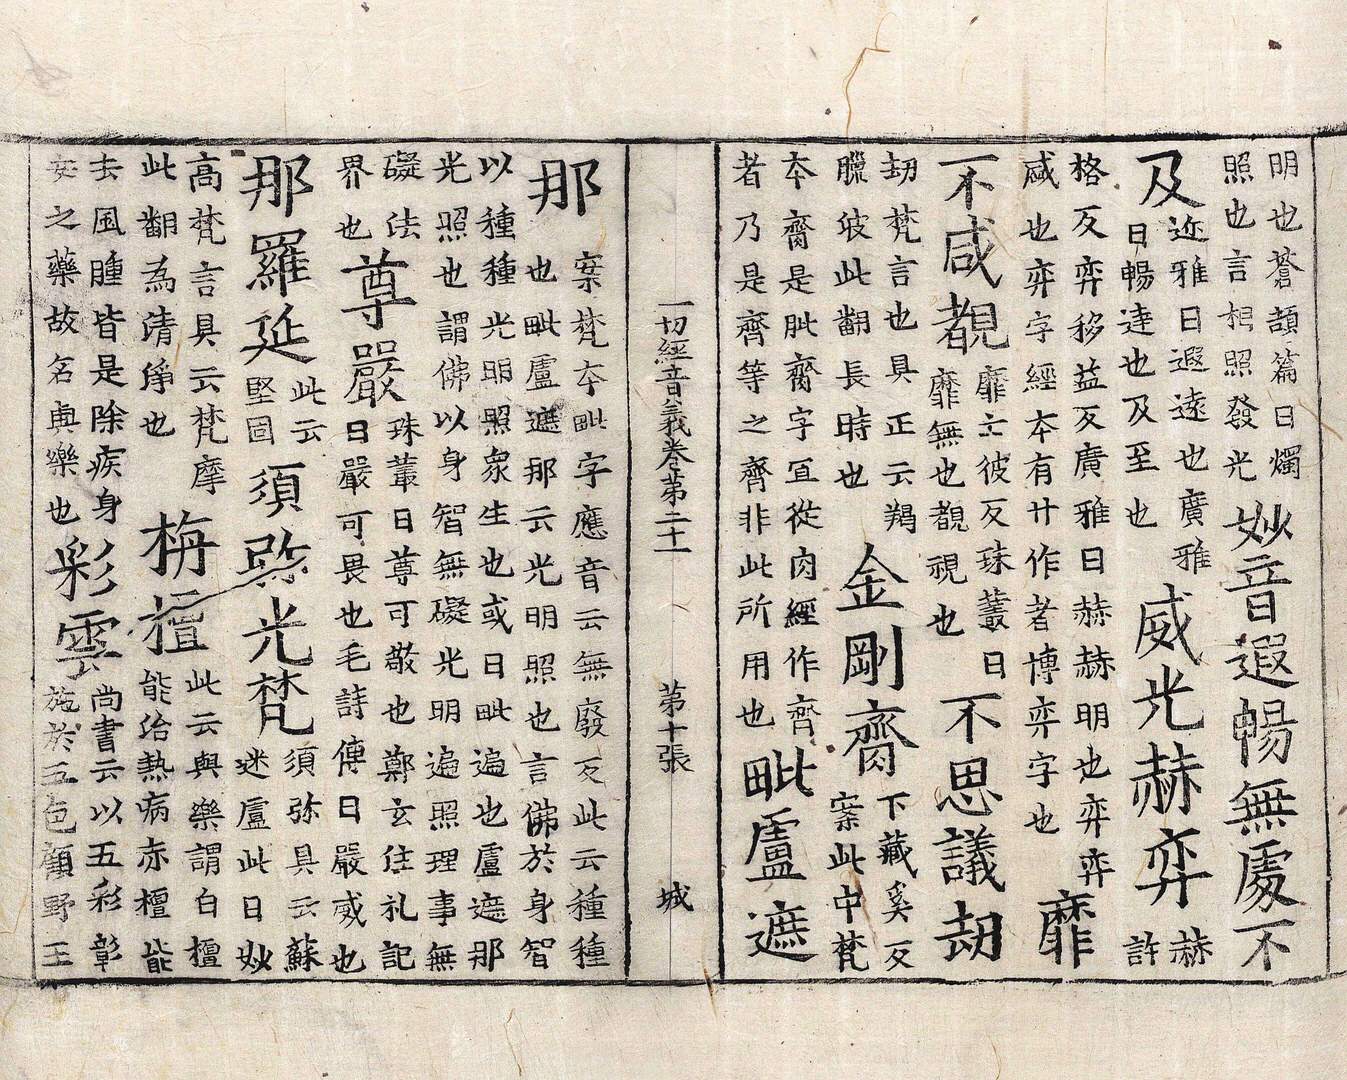 明也蒼頡篇曰燭
照也言相照發光
妙音遐暢無處不
及
迩雅曰遐遠也廣雅
曰暢達也及至也
威光赫弈
赫
許
格反弈移益反廣雅曰赫赫明也弈弈
咸也弈字經本有廾作者博弈字也
靡
不咸覩
靡亡彼反珠叢曰
靡無也覩視也
不思議劫
劫梵言也具正云羯
臘波此翻長時也
金剛齎
下藏奚反
案此中梵
本齎是肶齎字冝從肉經作齊
者乃是齊等之齊非此所用也
毗盧遮
一切經音義卷第二十一 第十張 城
那
案梵本毗字應音云無廢反此云種種
也毗盧遮那云光明照也言佛於身智
以種種光明照衆生也或曰毗遍也盧遮那
光照也謂佛以身智無礙光明遍照理事無
礙法
界也
尊嚴
珠叢曰尊可敬也鄭玄住礼記
曰嚴可畏也毛詩傳曰嚴威也
那羅延
此云
堅固
須弥光梵
須弥具云蘇
迷盧此曰妙
高梵言具云梵摩
此翻為清淨也
栴檀
此云與樂謂白檀
能治熱病赤檀能
去風腫皆是除疾身
安之藥故名與樂也
彩雲
尚書云以五彩彰
施於五色顧野王